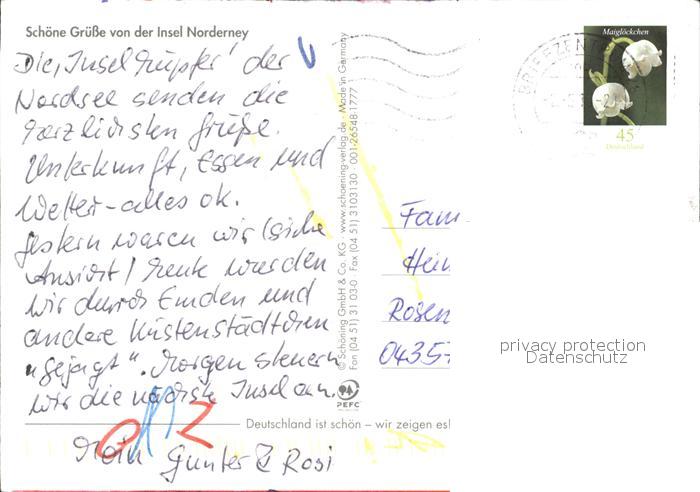 Schöne Grüße von der Insel Norderney
Die "Inselhüpfer" der
Nordsee senden die
herzlichsten Grüße.
Unterkunft, Essen und
Wetter - alles ok.
Gestern waren wir (siehe
Ansicht) heute wurden
wir durch Emden und
andere Küstenstädtchen
"gejagt". Morgen steuern
wir die nächste Insel an.
Moin Gunter & Rosi
© Schöning GmbH & Co. KG - www.schoening-verlag.de - Made in Germany
Fon (04 51) 31 03-0 Fax (04 51) 3103130 - 001-26548-1777
PEFC
Deutschland ist schön – wir zeigen es!
BRIEFZENT
Maiglöckchen
45
Deutschland
Fam
Hein
Rosen
04357
privacy protection
Datenschutz